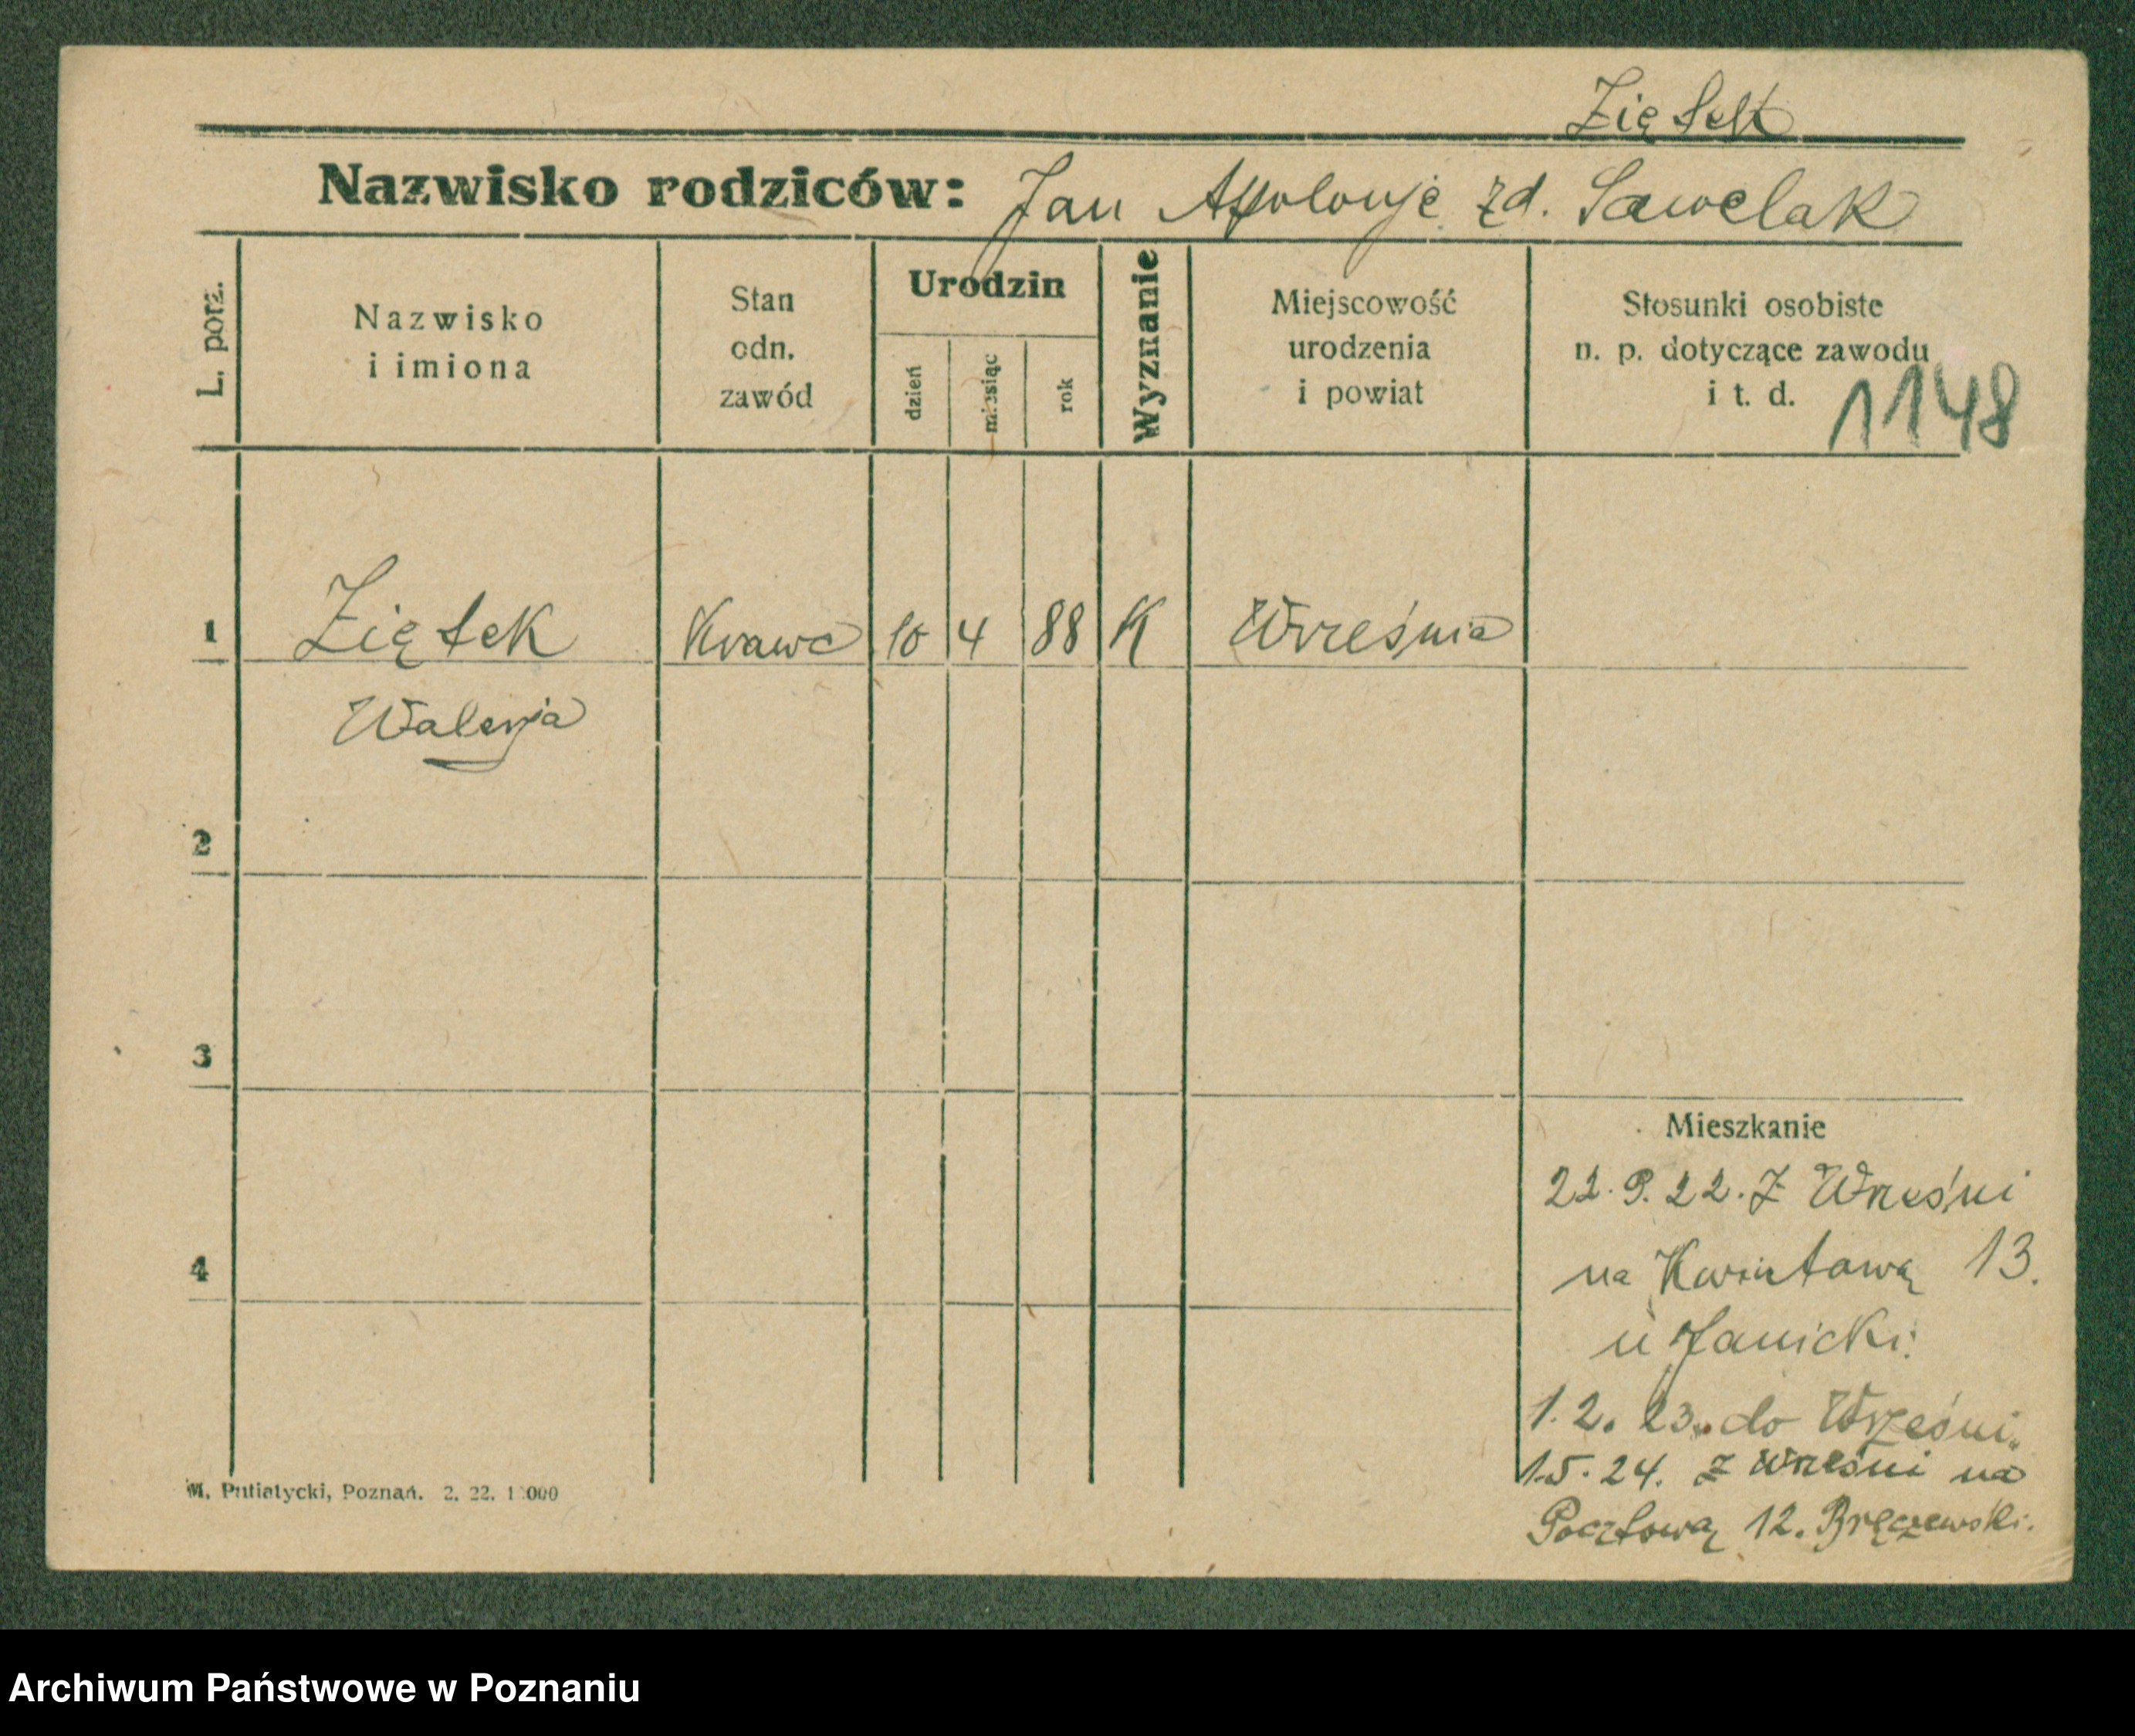 Ziętek
Nazwisko rodziców: Jan Apolonje zd. Sawelak
L. porz.
Nazwisko
i imiona
Stan
odn.
zawód
Urodzin
dzień
miesiąc
rok
Wyznanie
Miejscowość
urodzenia
i powiat
Stosunki osobiste
n. p. dotyczące zawodu
i t. d.
1148
1 Ziętek Krawc 10 4 88 K Wrześnie
Walerja
2
3
4
Mieszkanie
22. 9. 22. Z Wrześni
na 13.
u Janicki.
1. 2. 23. do Wrześni.
15. 24. z Wrześni na
Pocztową 12. Bręczewski.
M. Putiatycki, Poznań. 2. 22. 1 000
Archiwum Państwowe w Poznaniu